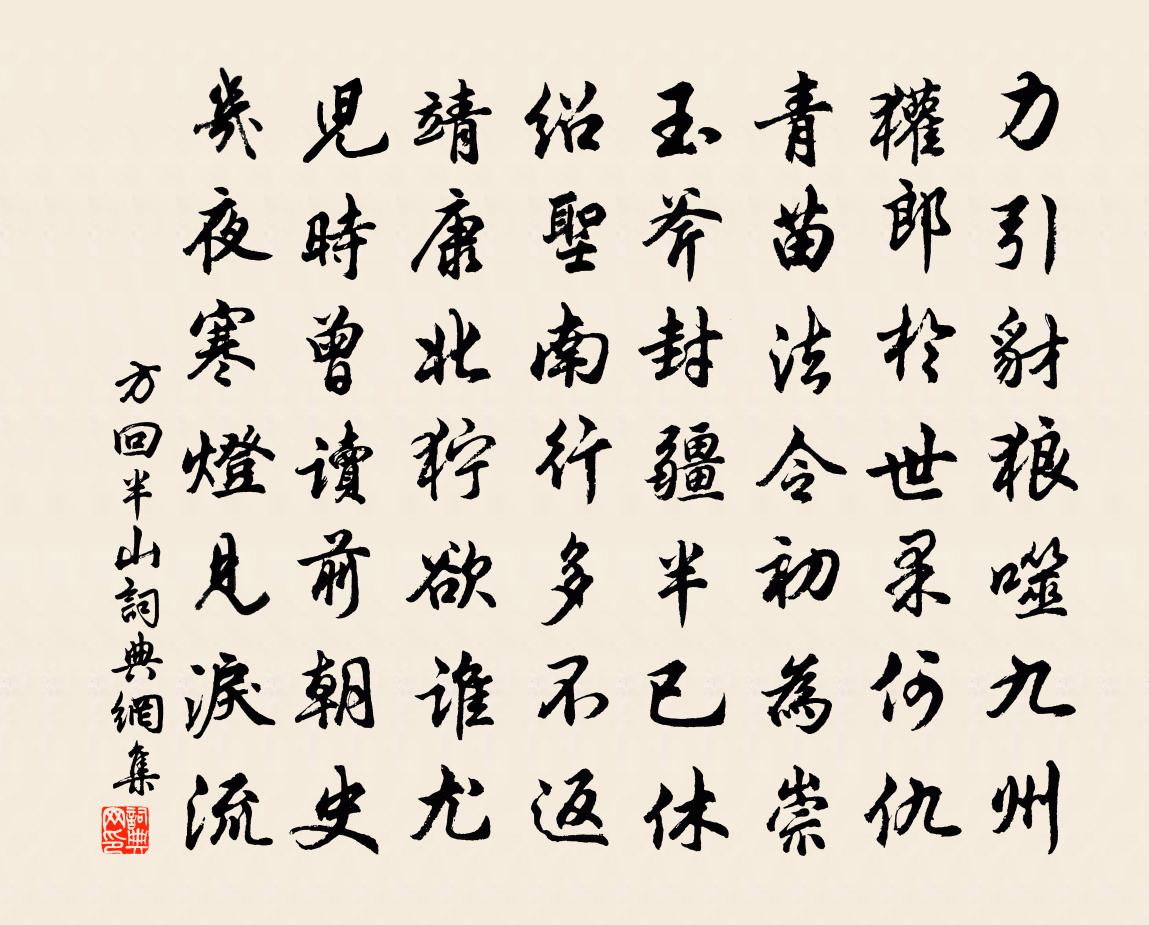 力引豺狼噬九州
獾郎於世果何仇
青苗法令初為崇
玉斧封疆半已休
绍聖南行多不返
靖康北狩欲誰尤
兒時曾讀前朝史
幾夜寒燈見淚流
方回半山詞典網集
詞典网印